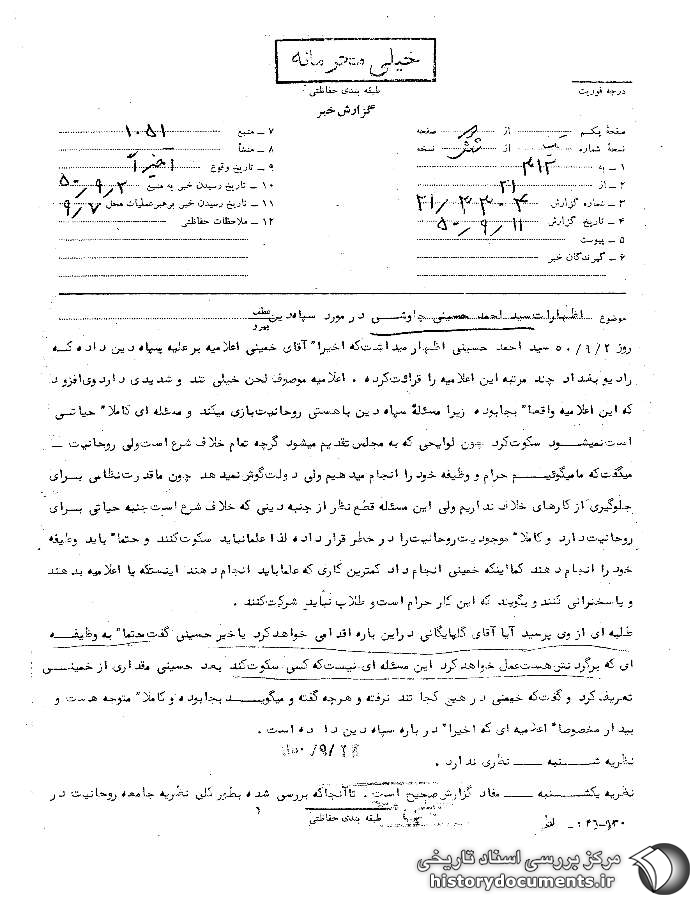 خیلی محرمانه
درجه فوریت
طبقه بندی حفاظتی
گزارش خبر
صفحهٔ یکم از دو صفحه
نسخهٔ شماره یک از شش نسخه
۱ ـ به ۳۱۲
۲ ـ از ۲۱
۳ ـ شماره گزارش ۲۱/۳۳۰۴
۴ ـ تاریخ گزارش ۵۰/۹/۱۱
۵ ـ پیوست
۶ ـ گیرندگان خبر
۷ ـ منبع ۱۰۵۱
۸ ـ منشأ
۹ ـ تاریخ وقوع اخیراً
۱۰ ـ تاریخ رسیدن خبر به منبع ۵۰/۹/۲
۱۱ ـ تاریخ رسیدن خبر برهبر عملیات محل ۹/۷
۱۲ ـ ملاحظات حفاظتی
موضوع اظهارات سید احمد حسینی چاوشی در مورد سپاه دین
عطف
پیرو
روز ۵۰/۹/۲ سید احمد حسینی اظهار میداشت که اخیرا" آقای خمینی اعلامیه بر علیه سپاه دین داده که
رادیو بغداد چند مرتبه این اعلامیه را قرائت کرده ، اعلامیه موصوف لحن خیلی تند و شدیدی دارد وی افزود
که این اعلامیه واقعا" بجا بوده زیرا مسئلهٔ سپاه دین با هستی روحانیت بازی میکند و مسئله ای کاملا" حیاتی
است نمیشود سکوت کرد چون لوایحی که به مجلس تقدیم میشود گرچه تمام خلاف شرع است ولی روحانیت ـ
میگفت که ما میگوئیم حرام و وظیفه خود را انجام میدهیم ولی دولت گوش نمیدهد چون ما قدرت نظامی برای
جلوگیری از کارهای خلاف نداریم ولی این مسئله قطع نظر از جنبه دینی که خلاف شرع است جنبه حیاتی برای
روحانیت دارد و کاملا" موجودیت روحانیت را در خطر قرار داده لذا علما نباید سکوت کنند و حتما" باید وظیفه
خود را انجام دهند کما اینکه خمینی انجام داد کمترین کاری که علما باید انجام دهند اینستکه یا اعلامیه بدهند
و یا سخنرانی کنند و بگویند که این کار حرام است و طلاب نباید شرکت کنند .
طلبه ای از وی پرسید آیا آقای گلپایگانی در این باره اقدامی خواهد کرد یا خیر حسینی گفت حتما" به وظیفه
ای که برگردنش هست عمل خواهد کرد این مسئله ای نیست که کسی سکوت کند بعد حسینی مقداری از خمینی
تعریف کرد و گفت که خمینی در هیچ کجا تند نرفته و هرچه گفته و میگوید بجا بوده و کاملا" متوجه هست و
بیدار مخصوصا" اعلامیه ای که اخیرا" در باره سپاه دین داده است .
نظریه شنبه ـــ نظری ندارد .
نظریه یکشنبه ـــ مفاد گزارش صحیح است . تا آنجا که بررسی شده بطور کلی نظریه جامعه روحانیت در
طبقه بندی حفاظتی
مرکز بررسی اسناد تاریخی
historydocuments.ir